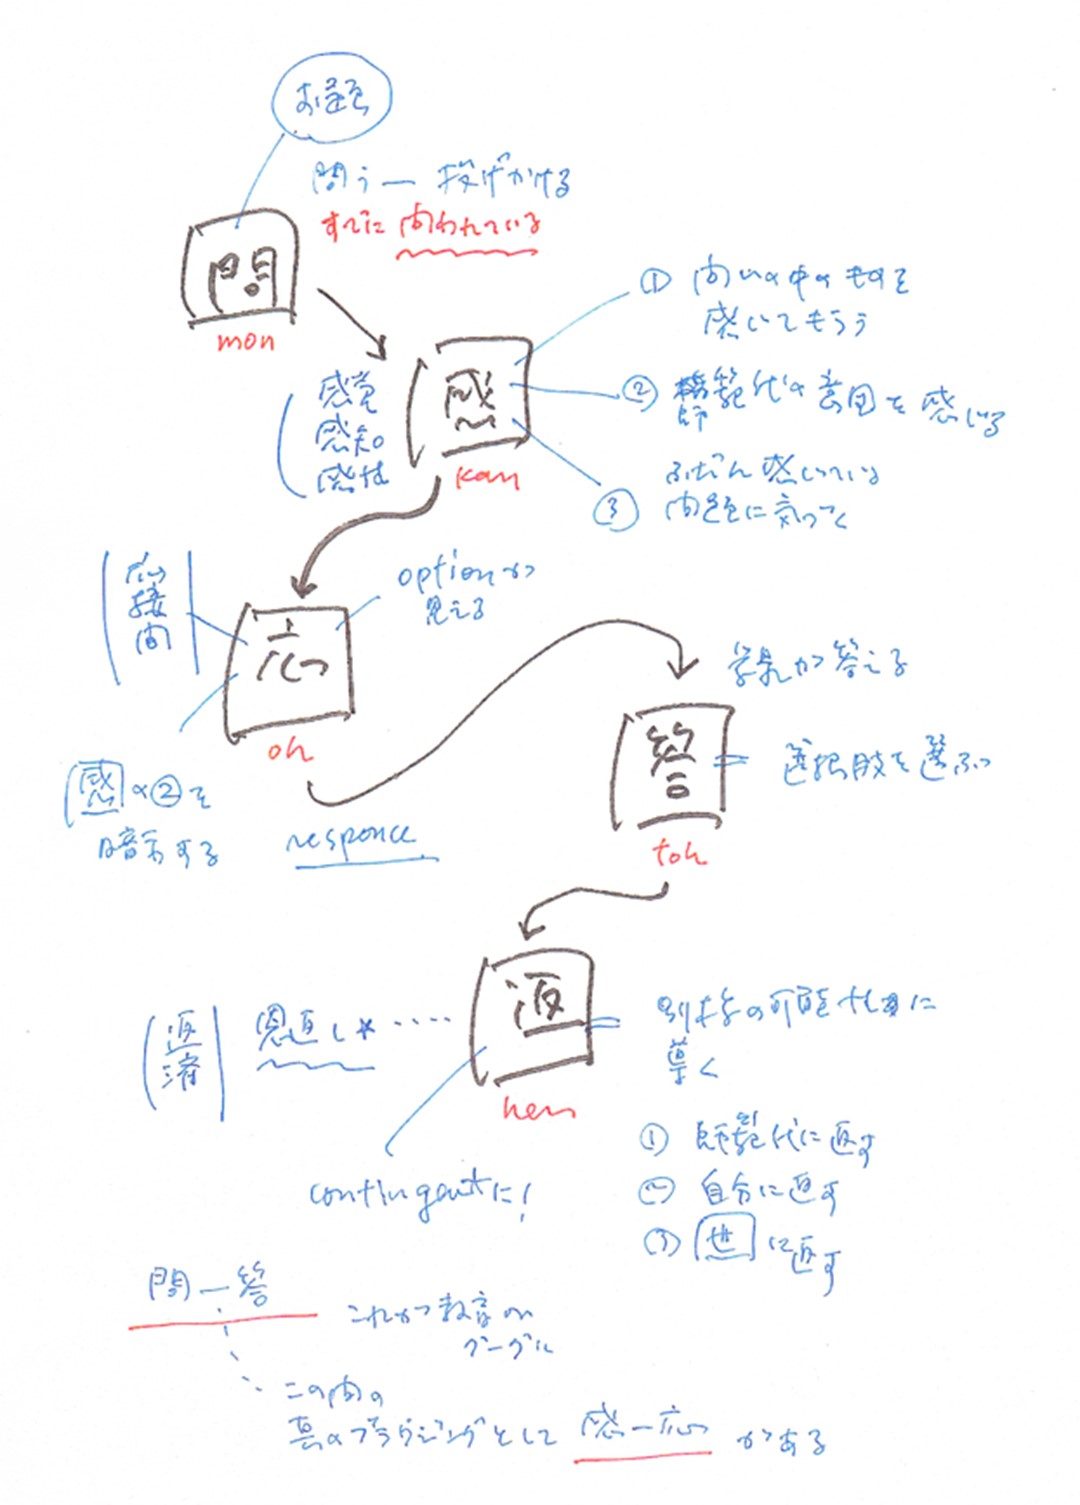 お題
問う ― 投げかける
すでに 問われている
問
mon
① 問いの中のものを
感じてもらう
感
② 師範代の意図を感じる
感覚
感知
感性
kan
③ ふだん感じている
問題に気づく
応接間
optionが
見える
応
oh
感の②を
暗示する
responce
学衆が答える
答
選択肢を選ぶ
toh
返
返済
恩返し*‥‥
別様の可能性に
導く
hen
contingentに!
① 師範代に返す
② 自分に返す
③ 世に返す
問―答
これが教育の
グーグル
この間の
真のブラウジングとして 感―応 がある